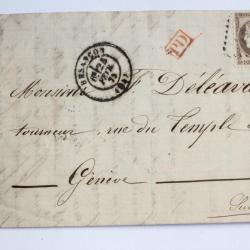 BESANÇON
PD
Monsieur F. Déléava
tourneur, rue du Temple
Genève
Sui